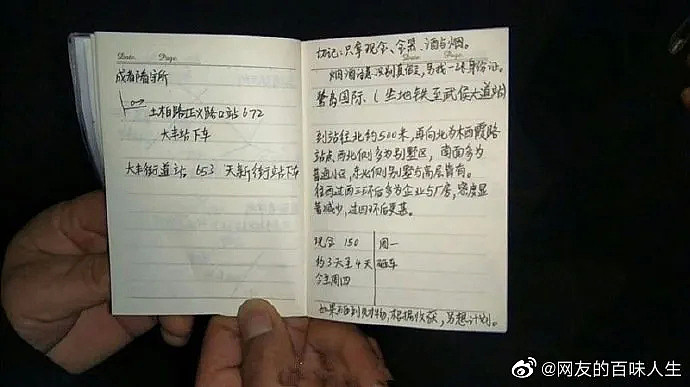 Date. Page.
成都看守所
土柏路正义路口站 672
大丰站下车
大丰街道站 653 天新街站下车
切记:只拿现金、金器、酒与烟。
Date. Page.
烟酒注意识别真假,另找一张身份证。
鹭岛国际、(坐地铁至武侯大道站)
到站往北约500米,再向北为木西霞路
站点西北侧多为别墅区,南面多为
普通小区,东北侧别墅与高层皆有。
往西过西三环后多为企业与厂房,密度显
著减少,过四环后更甚。
现金 150 周一
约3天至4天 砸车
今至周四
如果 根据收获,另想计划。
@网友的百味人生